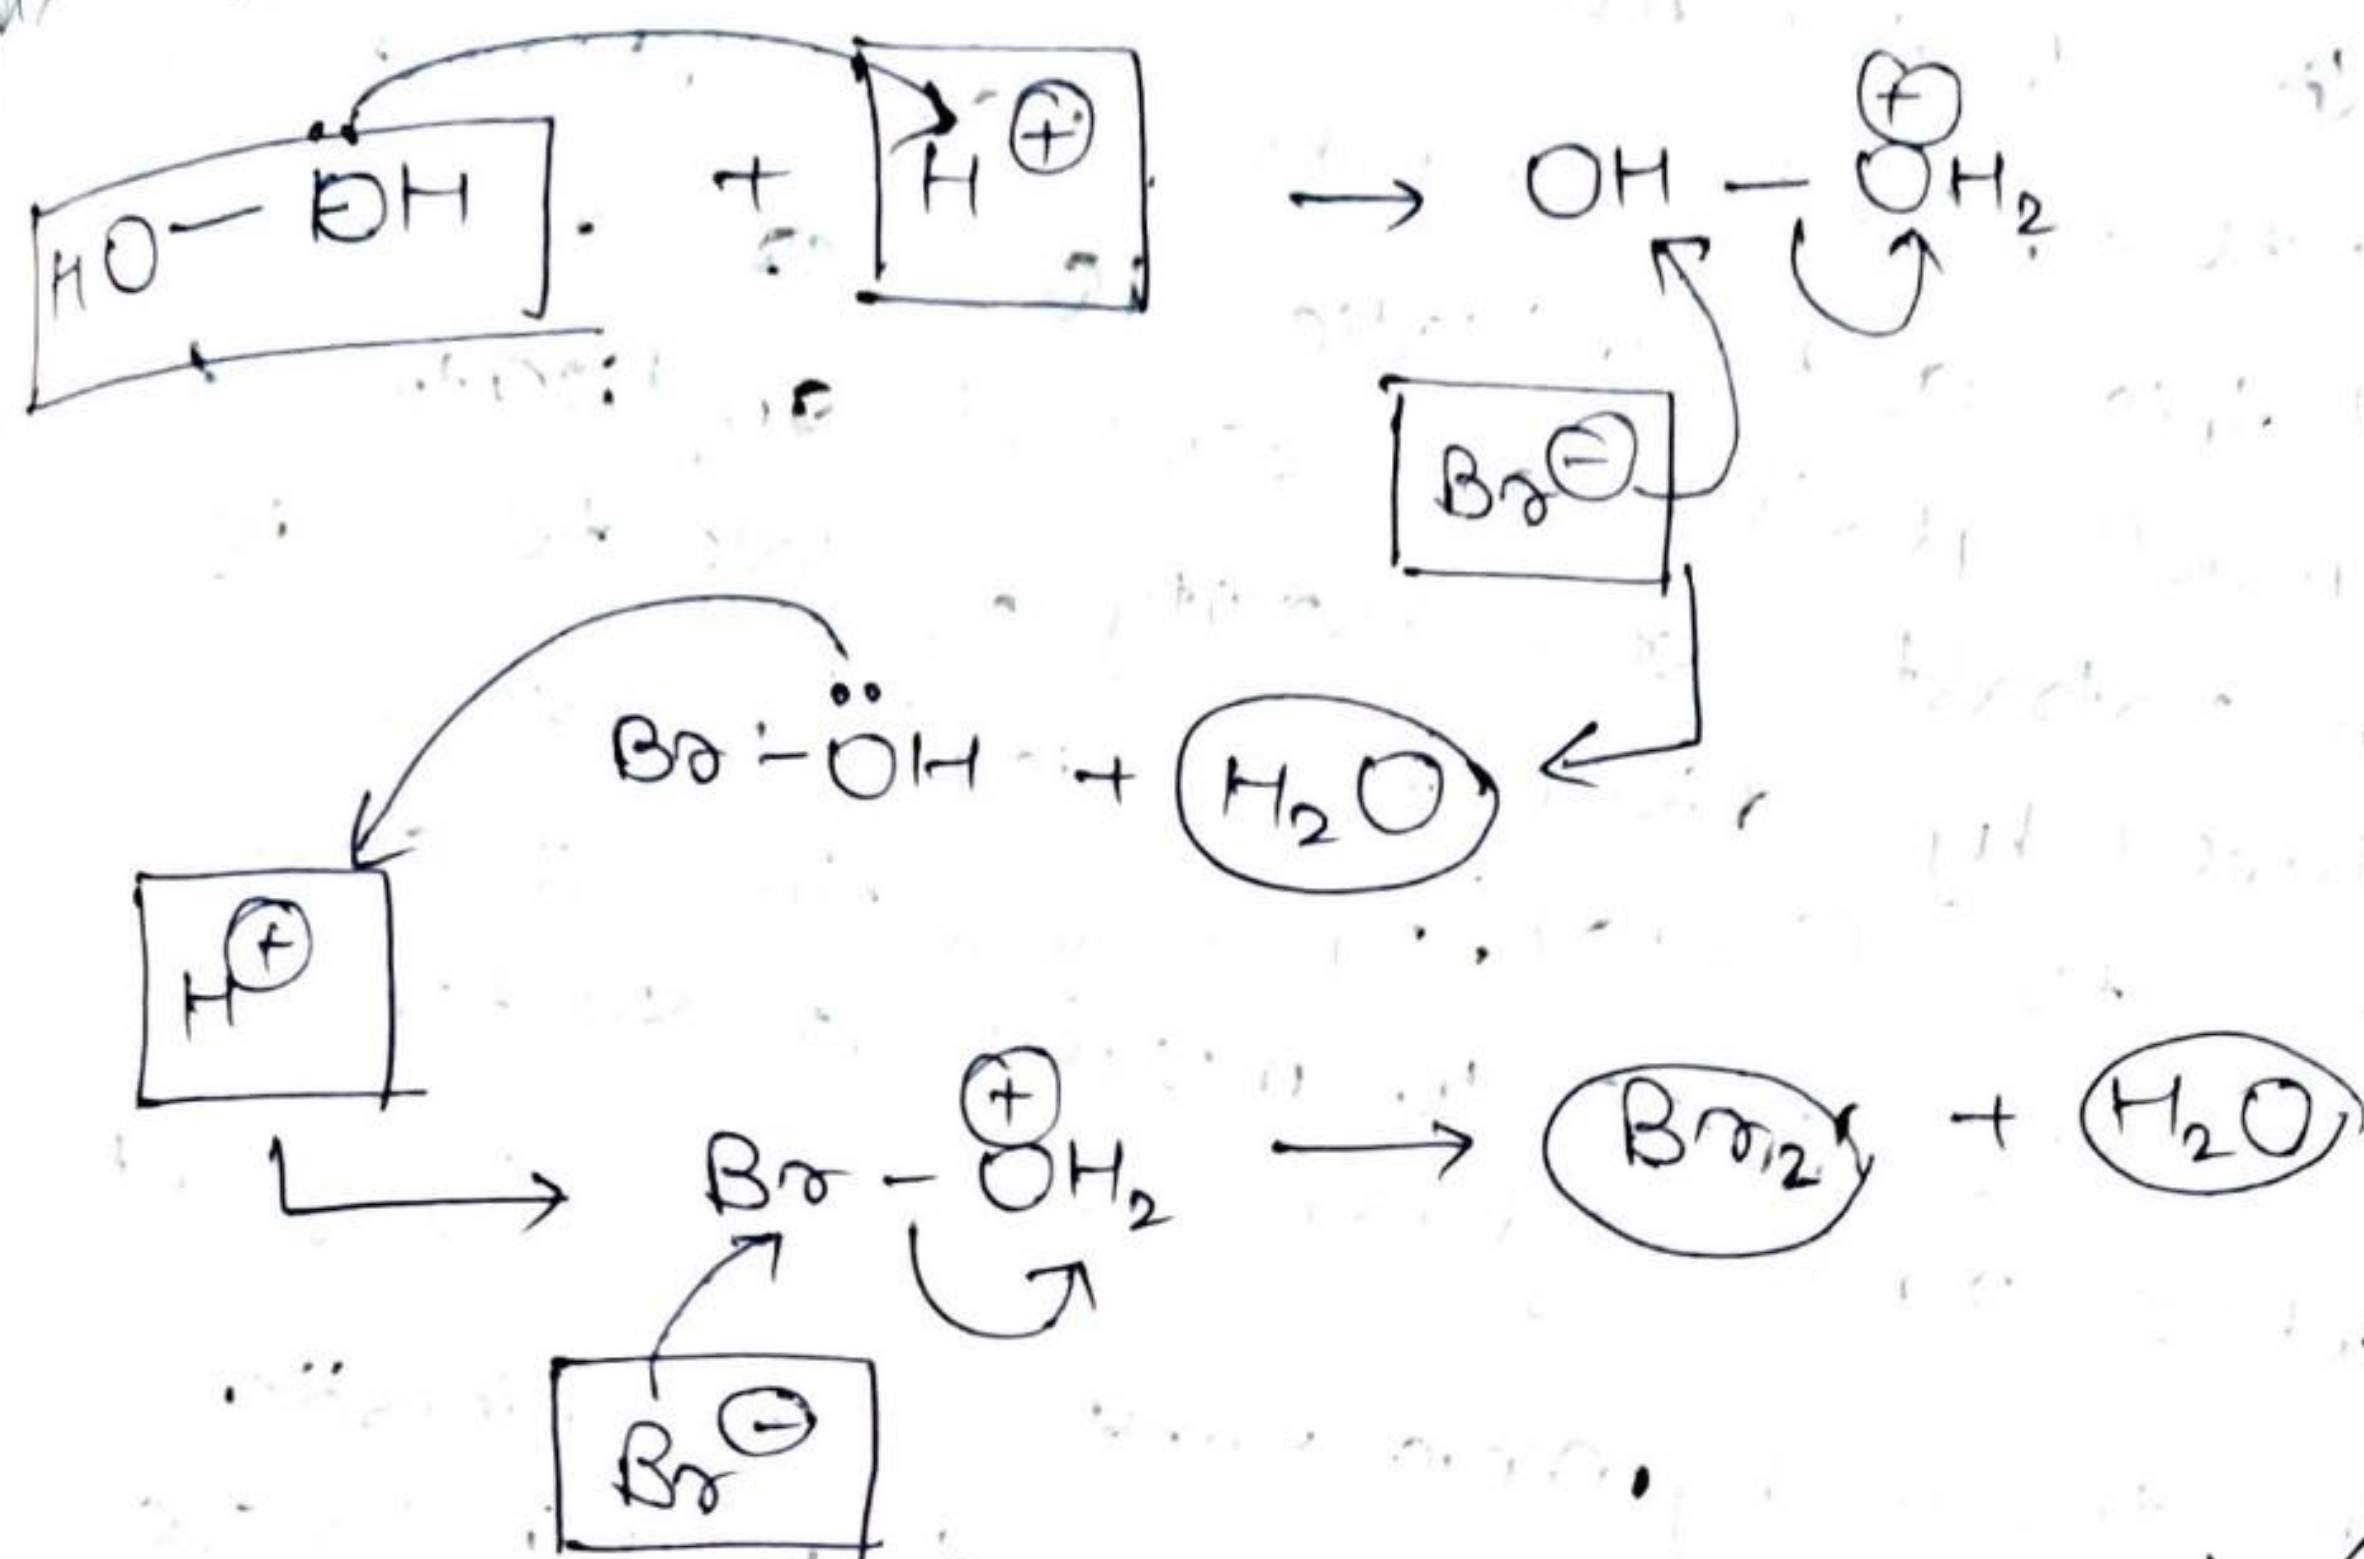 HO - OH + H⊕ → OH - O⊕H₂
Br⊖
Br - ÖH + H₂O
H⊕
Br - O⊕H₂ → Br₂ + H₂O
Br⊖